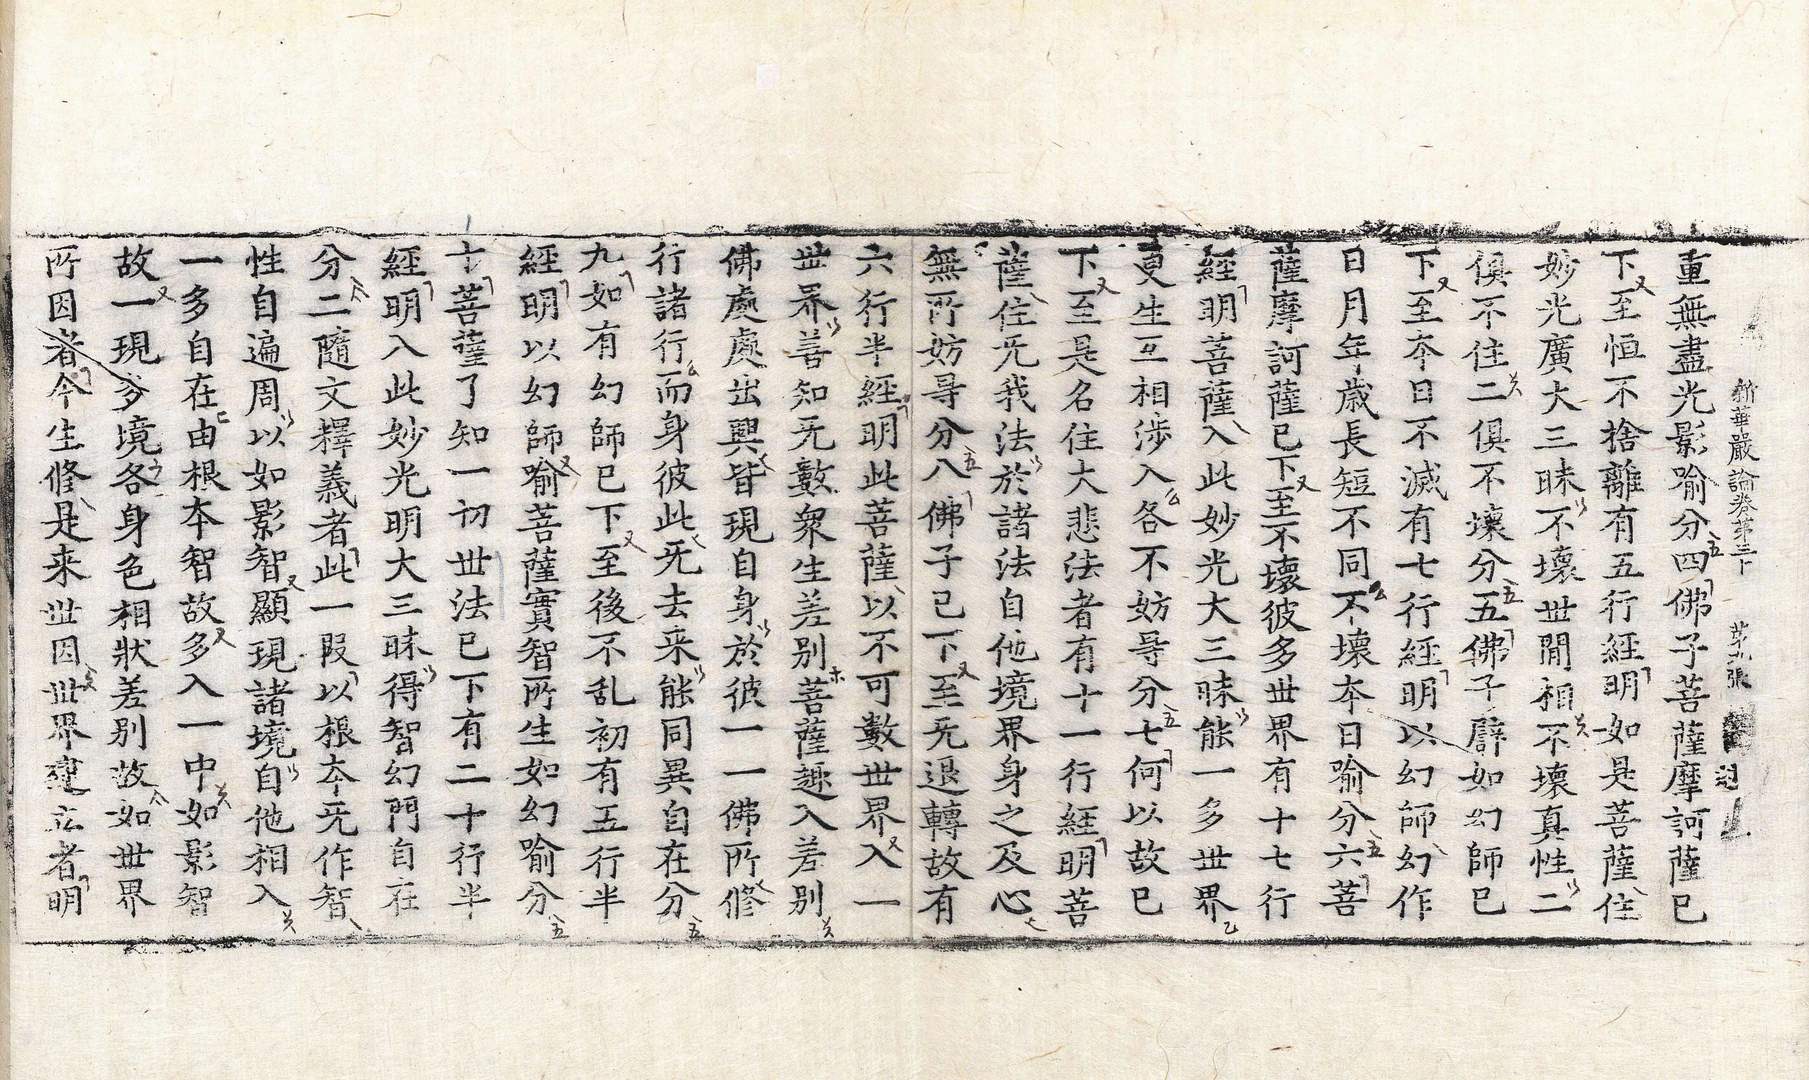 新華嚴論卷第三十　第九張　過
重無盡光影喻分四佛子菩薩摩訶薩已
下至恒不捨離有五行經明如是菩薩住
妙光廣大三昧不壞世閒相不壞真性二
俱不住二俱不壞分五佛子譬如幻師已
下至夲日不滅有七行經明以幻師幻作
日月年歲長短不同不壞夲日喻分六菩
薩摩訶薩已下至不壞彼多世界有十七行
經明菩薩入此妙光大三昧能一多世界
更生互相涉入各不妨㝵分七何以故已
下至是名住大悲法者有十一行經明菩
薩住无我法於諸法自他境界身之及心
無所妨㝵分八佛子已下至无退轉故有
六行半經明此菩薩以不可數世界入一
世界善知无數衆生差别菩薩趣入差别
佛處處出興皆現自身於彼一一佛所修
行諸行而身彼此无去来能同異自在分
九如有幻師已下至後不乱初有五行半
經明以幻師喻菩薩實智所生如幻喻分
十菩薩了知一切世法已下有二十行半
經明入此妙光明大三昧得智幻門自在
分二隨文釋義者此一段以根夲无作智
性自遍周以如影智顯現諸境自他相入
一多自在由根夲智故多入一中如影智
故一現多境各身色相狀差别故如世界
所因者今生修是来世因世界建立者明